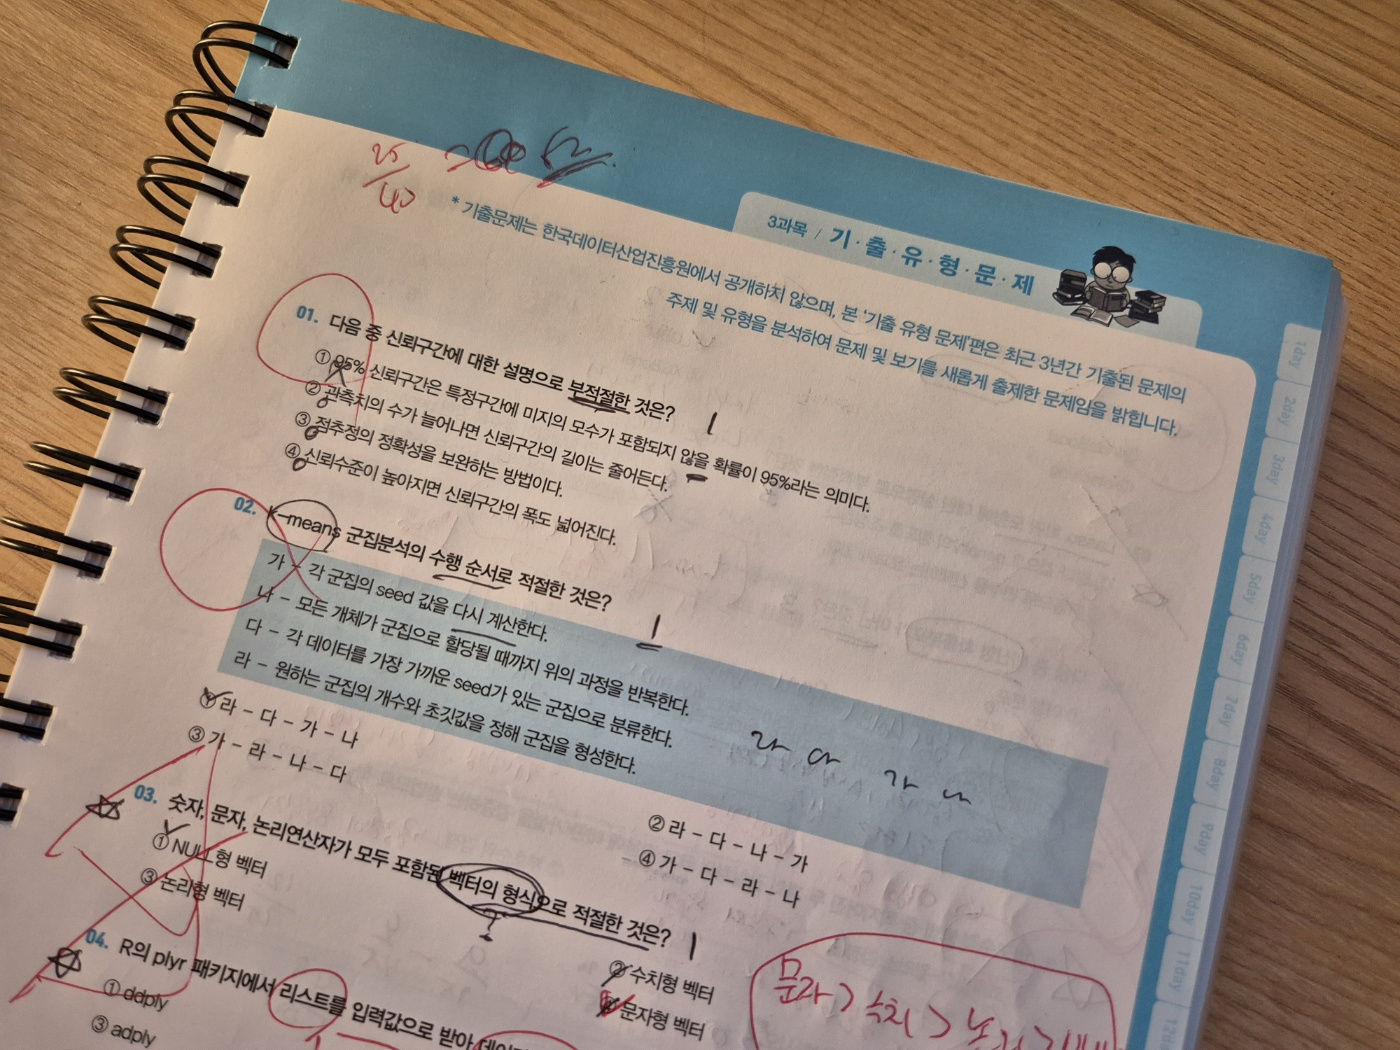 25/40
3과목 / 기·출·유·형·문·제
* 기출문제는 한국데이터산업진흥원에서 공개하지 않으며, 본 '기출 유형 문제'편은 최근 3년간 기출된 문제의
주제 및 유형을 분석하여 문제 및 보기를 새롭게 출제한 문제임을 밝힙니다.
01. 다음 중 신뢰구간에 대한 설명으로 부적절한 것은? 1
① 95% 신뢰구간은 특정구간에 미지의 모수가 포함되지 않을 확률이 95%라는 의미다.
② 관측치의 수가 늘어나면 신뢰구간의 길이는 줄어든다.
③ 점추정의 정확성을 보완하는 방법이다.
④ 신뢰수준이 높아지면 신뢰구간의 폭도 넓어진다.
02. K-means 군집분석의 수행 순서로 적절한 것은? 1
가 - 각 군집의 seed 값을 다시 계산한다.
나 - 모든 개체가 군집으로 할당될 때까지 위의 과정을 반복한다.
다 - 각 데이터를 가장 가까운 seed가 있는 군집으로 분류한다.
라 - 원하는 군집의 개수와 초깃값을 정해 군집을 형성한다.
라 다 가 나
① 라 - 다 - 가 - 나
② 라 - 다 - 나 - 가
③ 가 - 라 - 나 - 다
④ 가 - 다 - 라 - 나
03. 숫자, 문자, 논리연산자가 모두 포함된 벡터의 형식으로 적절한 것은? 1
① NULL형 벡터
② 수치형 벡터
③ 논리형 벡터
④ 문자형 벡터
문자 > 숫자 >
04. R의 plyr 패키지에서 리스트를 입력값으로 받아
① ddply
③ adply
1day
2day
3day
4day
5day
6day
7day
8day
9day
10day
11day